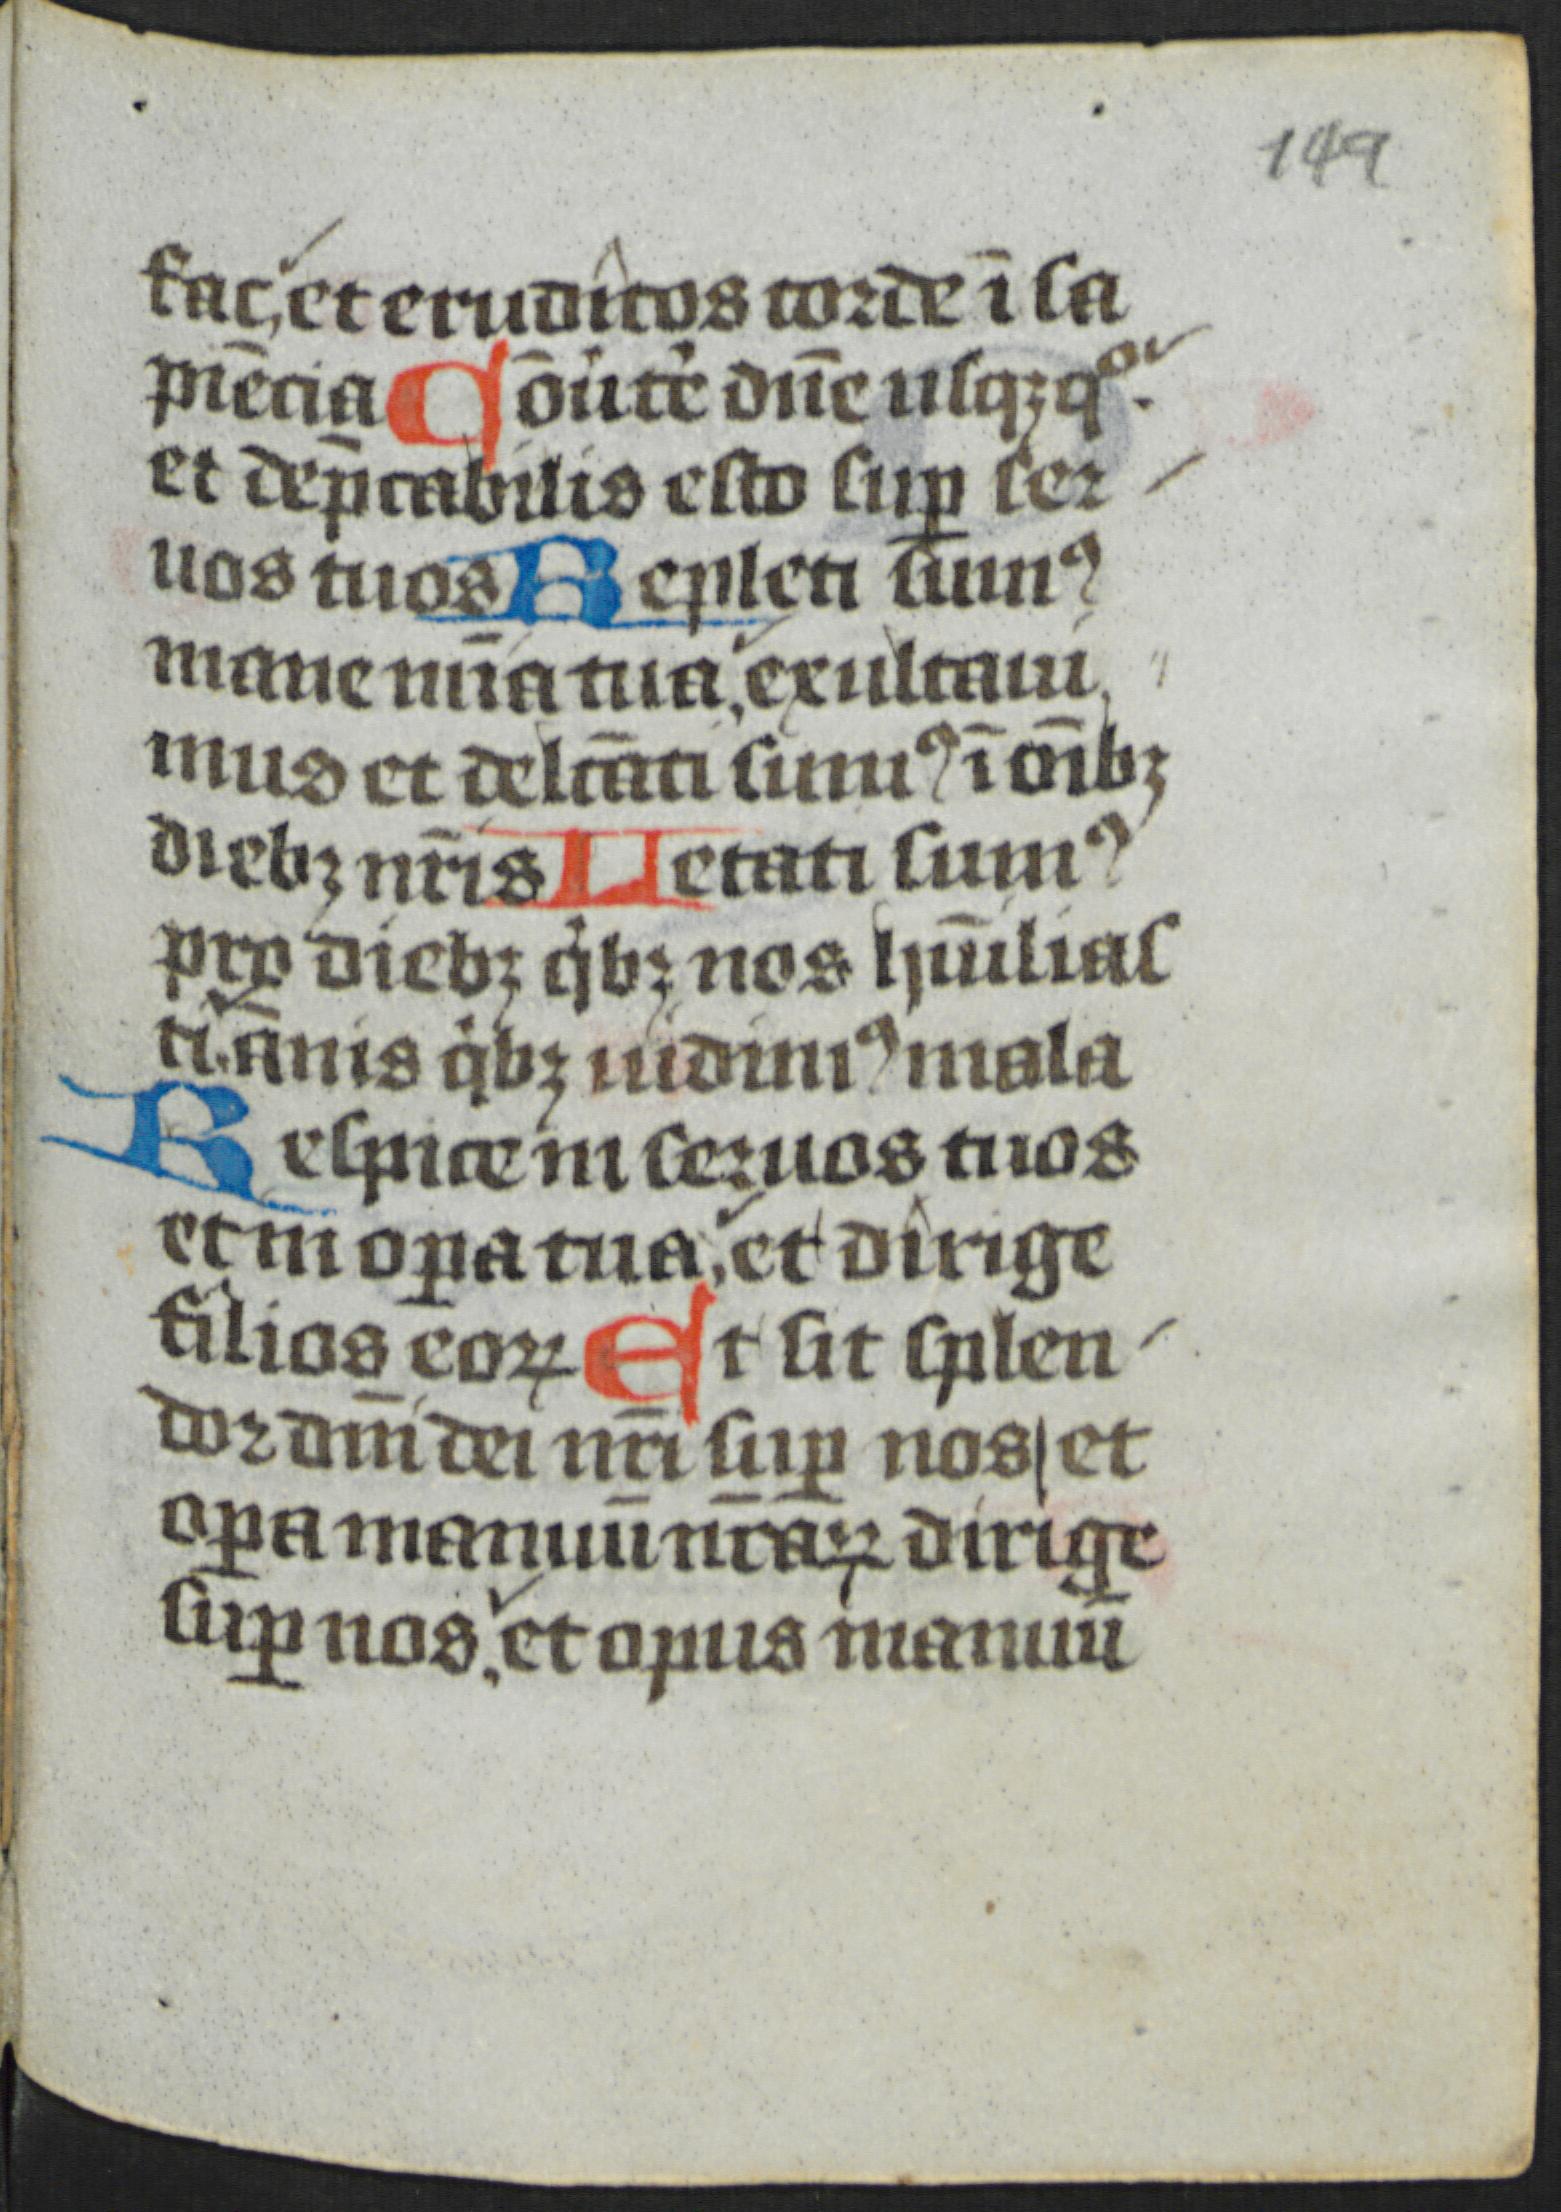 149
fac, et eruditos corde ī sa
piēcia Cōūtė dn̄e usqꝫqͦ.
et dep̄cabilis esto suꝑ ser
uos tuos Repleti sumꝰ
mane mīa tua, exultaui
mus et delcāti sumꝰ ī oībꝫ
diebꝫ nr̄is Letati sumꝰ
pro diebꝫ qͥbꝫ nos hūilias
ti, ānis qͥbꝫ uidimꝰ mala
Respice in seruos tuos
et in oꝑa tua, et dirige
filios eoꝝ Et sit splen
dor dn̄i dei nr̄i suꝑ nos et
oꝑa manuū nr̄āꝝ dirige
suꝑ nos, et opus manuū